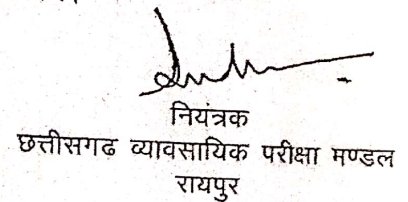 नियंत्रक
छत्तीसगढ व्यावसायिक परीक्षा मण्डल
रायपुर